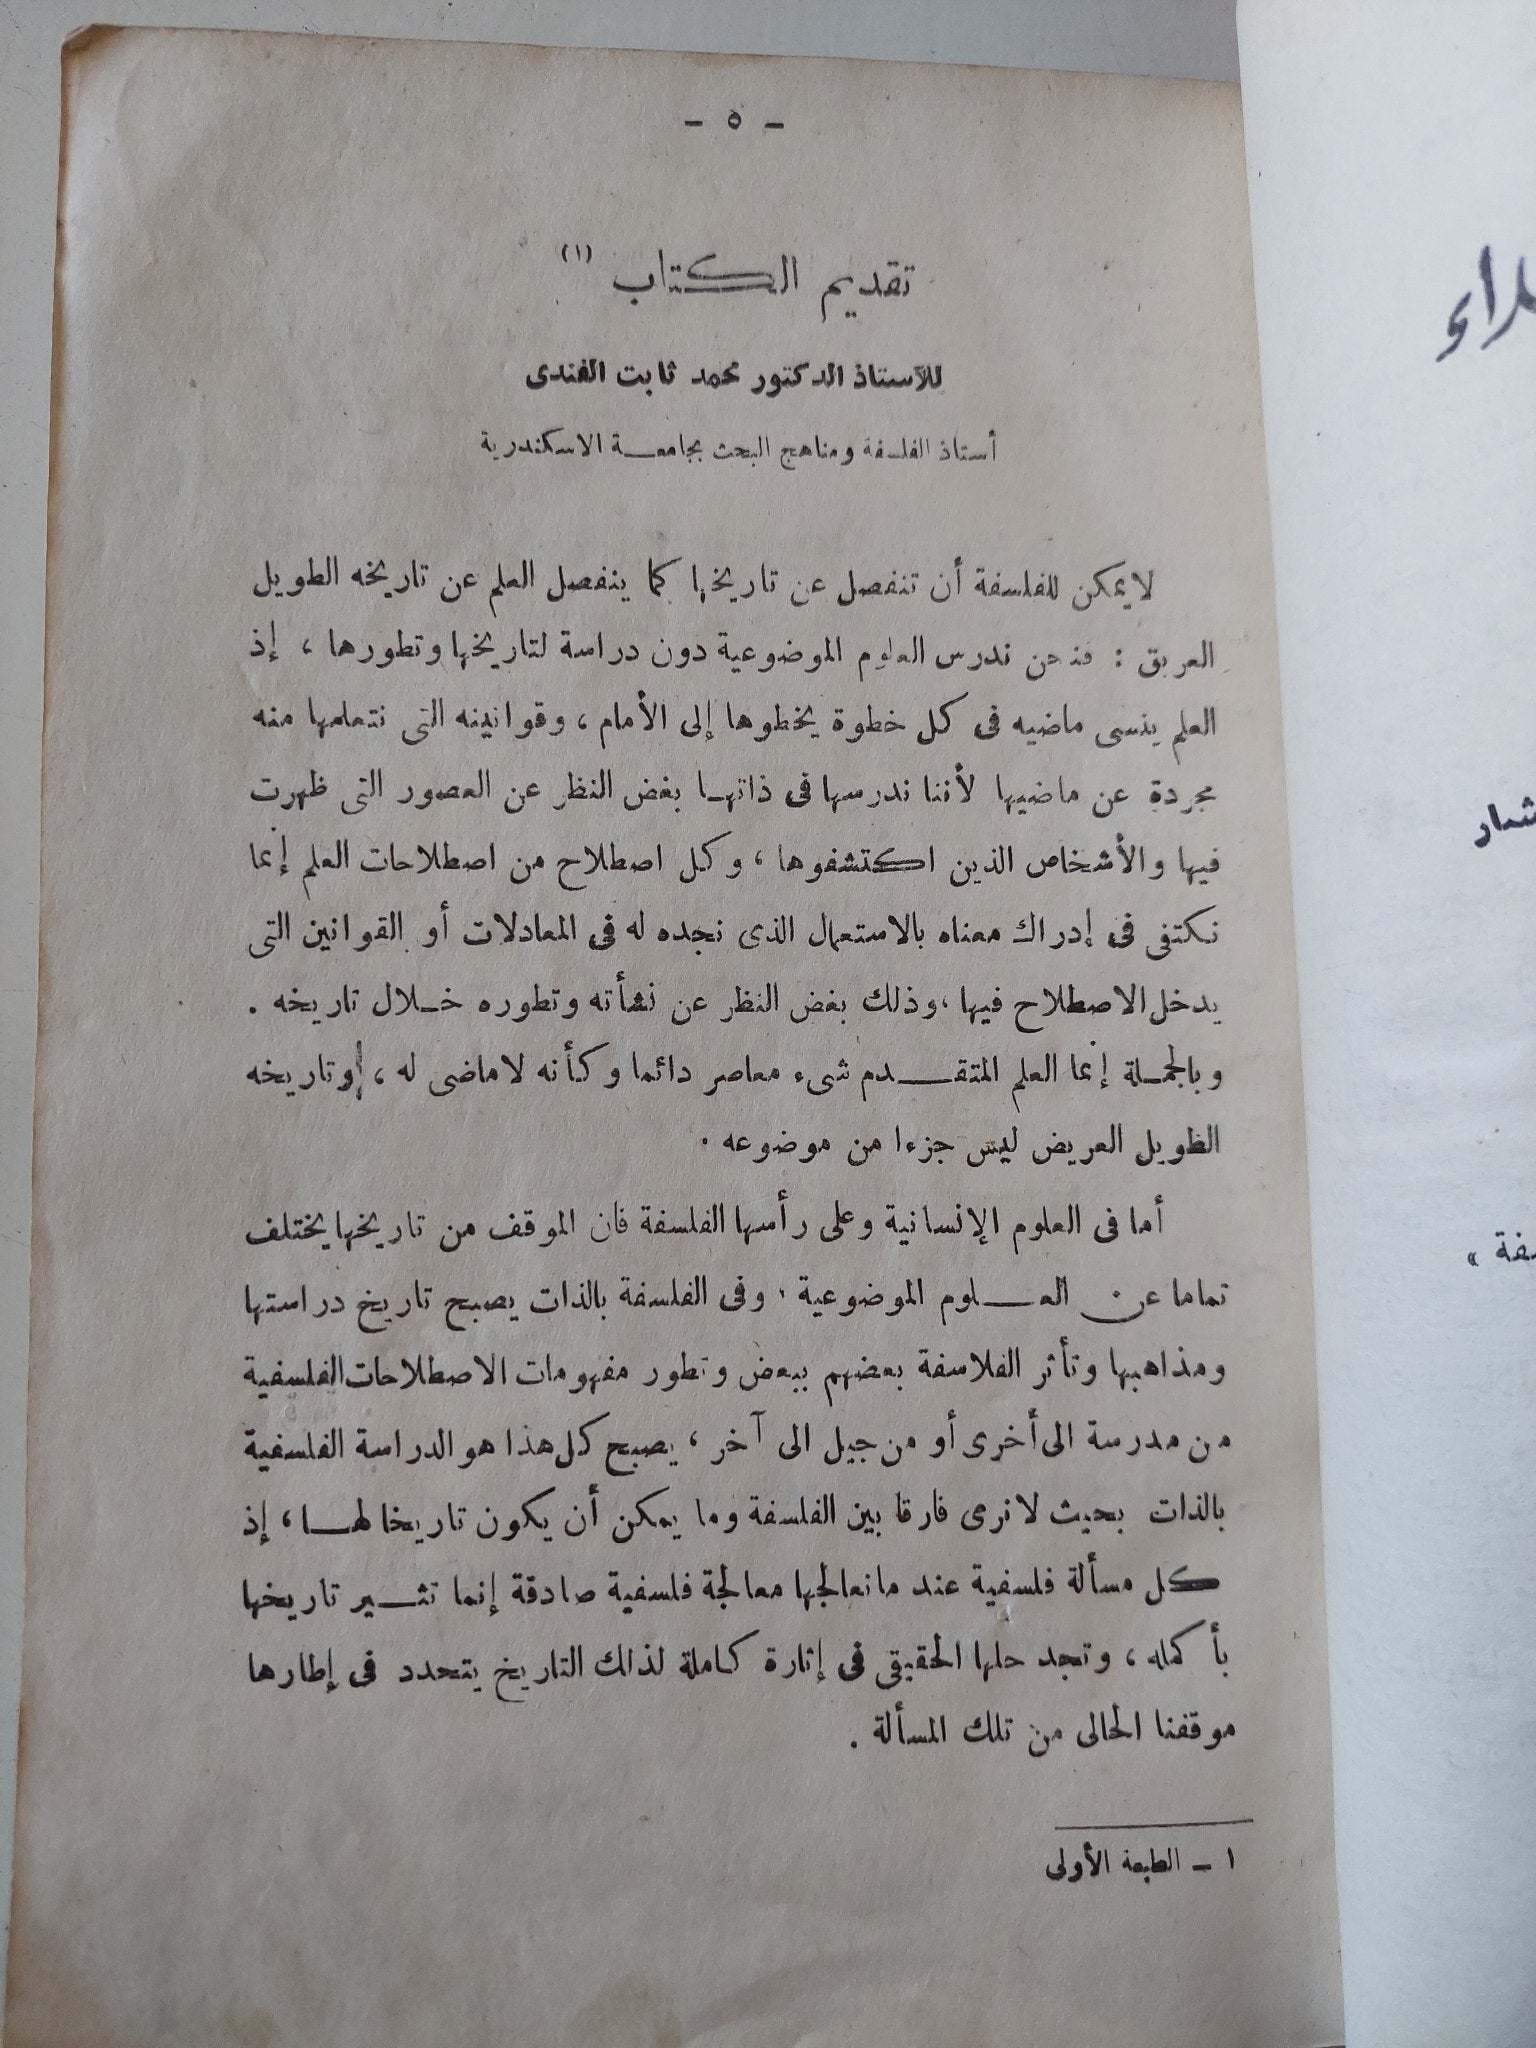 - ٥ -
تقديم الكتاب (١)
للأستاذ الدكتور محمد ثابت الفندى
أستاذ الفلسفة ومناهج البحث بجامعة الاسكندرية
لايمكن للفلسفة أن تنفصل عن تاريخها كما ينفصل العلم عن تاريخه الطويل
العريق : فنحن ندرس العلوم الموضوعية دون دراسة لتاريخها وتطورها ، إذ
العلم ينسى ماضيه فى كل خطوة يخطوها إلى الأمام ، وقوانينه التى نتعلمها منه
مجردة عن ماضيها لأننا ندرسها فى ذاتها بغض النظر عن العصور التى ظهرت
فيها والأشخاص الذين اكتشفوها ، وكل اصطلاح من اصطلاحات العلم إنما
نكتفى فى إدراك معناه بالاستعمال الذى نجده له فى المعادلات أو القوانين التى
يدخل الاصطلاح فيها ، وذلك بغض النظر عن نشأته وتطوره خلال تاريخه .
وبالجملة إنما العلم المتقدم شىء معاصر دائما وكأنه لاماضى له ، أو تاريخه
الطويل العريض ليس جزءا من موضوعه .
أما فى العلوم الإنسانية وعلى رأسها الفلسفة فان الموقف من تاريخها يختلف
تماما عن العلوم الموضوعية . وفى الفلسفة بالذات يصبح تاريخ دراستها
ومذاهبها وتأثر الفلاسفة بعضهم ببعض وتطور مفهومات الاصطلاحات الفلسفية
من مدرسة الى أخرى أو من جيل الى آخر ، يصبح كل هذا هو الدراسة الفلسفية
بالذات بحيث لانرى فارقا بين الفلسفة وما يمكن أن يكون تاريخا لها ، إذ
كل مسألة فلسفية عند مانعالجها معالجة فلسفية صادقة إنما تثير تاريخها
بأكمله ، وتجد حلها الحقيقى فى إثارة كاملة لذلك التاريخ يتحدد فى إطارها
موقفنا الحالى من تلك المسألة .
١ - الطبعة الأولى